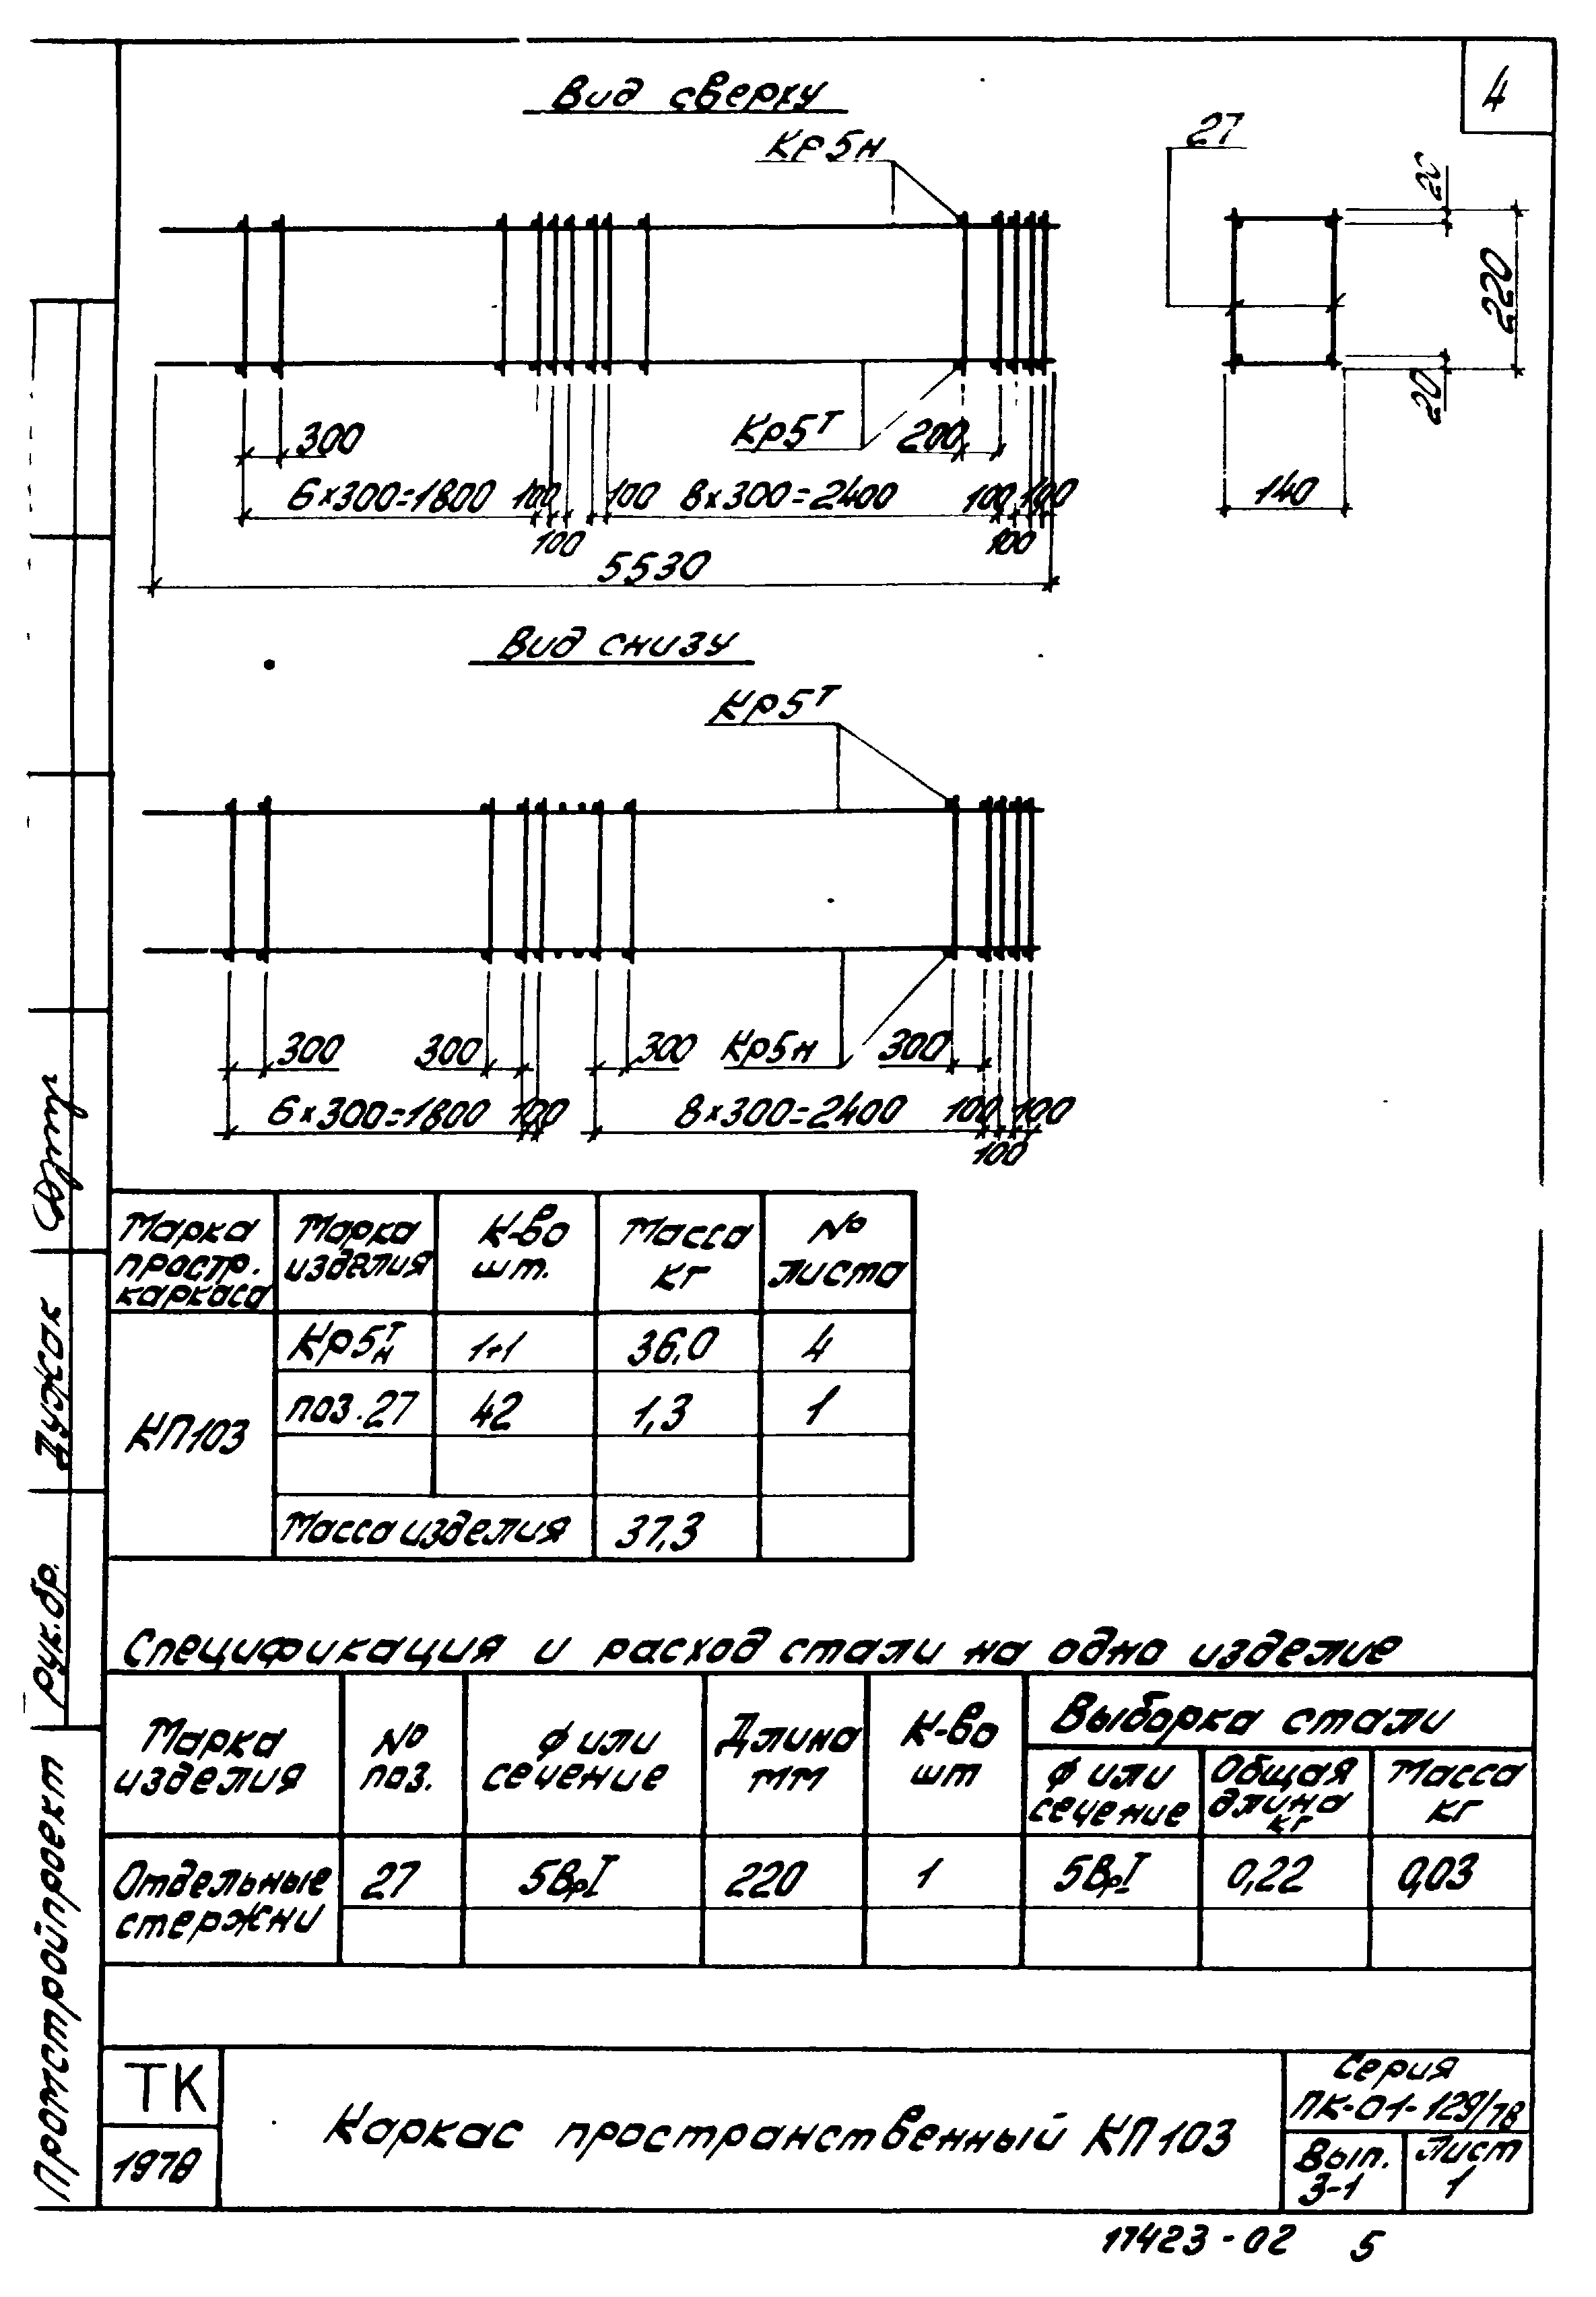 4
Вид сверху
Кр5н
27
20
220
20
140
Кр5т
300
200
6×300=1800 100 100 8×300=2400 100 100
100 100
5530
Вид снизу
Кр5т
300 300 300 Кр5н 300
6×300=1800 100 8×300=2400 100 100
100
Марка простр. каркаса
Марка изделия
К-во шт.
Масса кг
№ листа
КП103
Кр5т/н 1+1 36,0 4
поз.27 42 1,3 1
Масса изделия 37,3
Спецификация и расход стали на одно изделие
Марка изделия
№ поз.
ф или сечение
Длина мм
К-во шт
Выборка стали
ф или сечение
Общая длина кг
Масса кг
Отдельные стержни
27 5ВрI 220 1 5ВрI 0,22 0,03
ТК
1978
Каркас пространственный КП103
Серия
ПК-01-129/78
Вып. 3-1
Лист 1
17423-02 5
Промстройпроект
Рук.бр.
Дужак